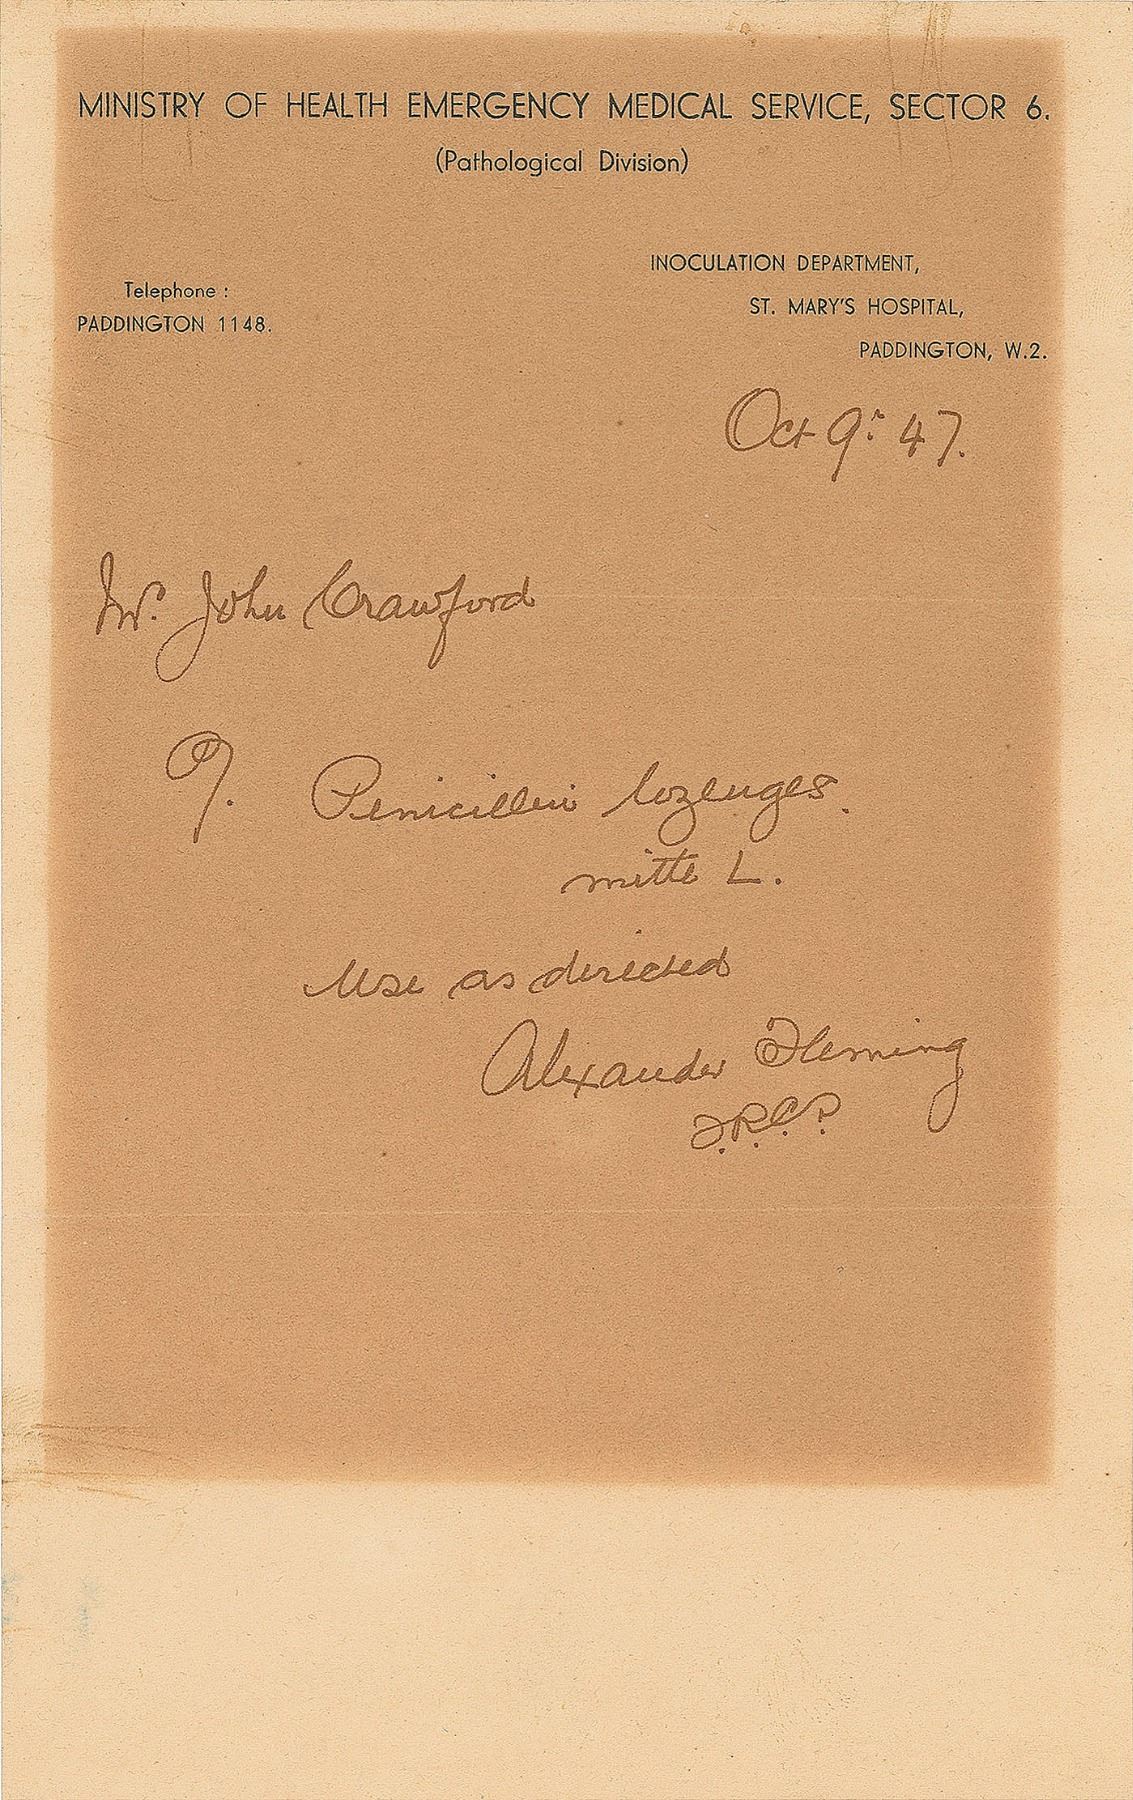 MINISTRY OF HEALTH EMERGENCY MEDICAL SERVICE, SECTOR 6.
(Pathological Division)
INOCULATION DEPARTMENT,
Telephone :
ST. MARY'S HOSPITAL,
PADDINGTON 1148.
PADDINGTON, W.2.
Oct 9th 47.
Mr. John Crawford
Penicillin lozenges.
mitte L.
Use as directed
Alexander Fleming
F.R.C.P.